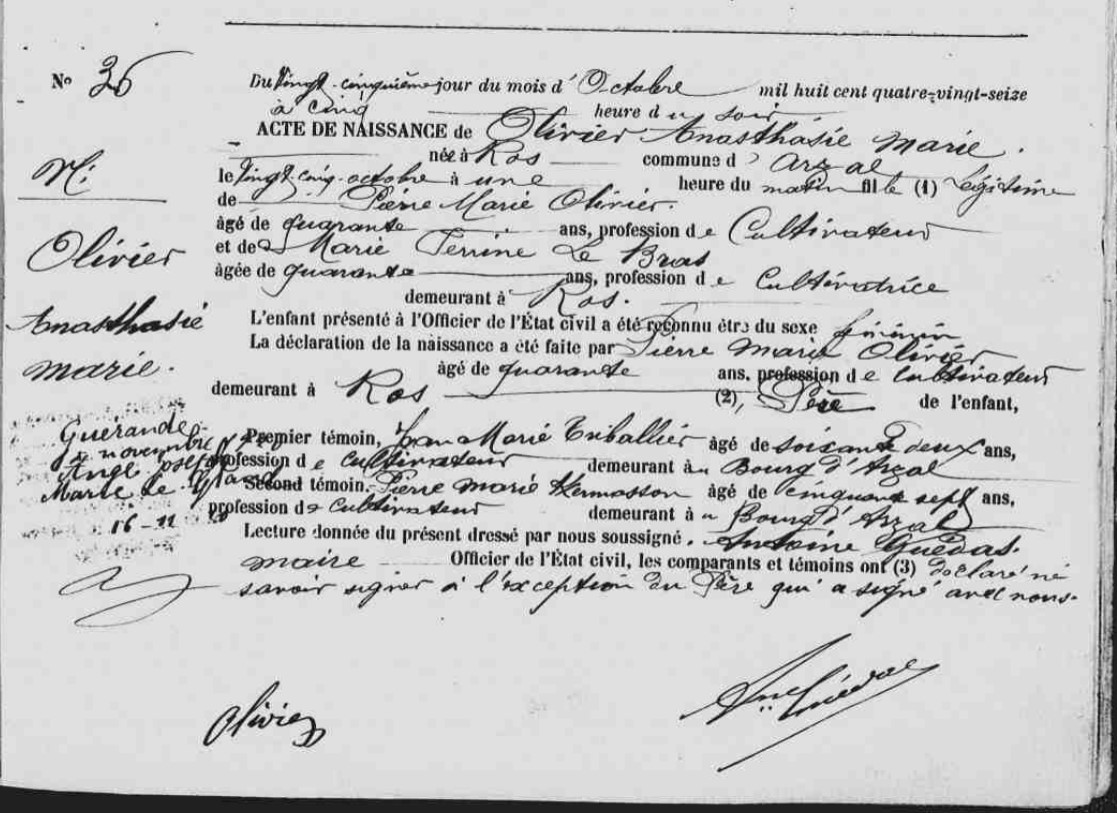 No 36
Du Vingt-cinquième jour du mois d'Octobre mil huit cent quatre-vingt-seize
à cinq heure du soir
ACTE DE NAISSANCE de Olivier Anasthasie Marie.
née à Ros commune d'Arzal
le Vingt cinq octobre à une heure du matin fille (1) Légitime
de Pierre Marie Olivier.
âgé de quarante ans, profession de Cultivateur
et de Marie Perrine Le Bras
âgée de quarante ans, profession de Cultivatrice
demeurant à Ros.
L'enfant présenté à l'Officier de l'État civil a été reconnu être du sexe féminin
La déclaration de la naissance a été faite par Pierre Marie Olivier
âgé de quarante ans, profession de cultivateur
demeurant à Ros (2), Père de l'enfant,
Premier témoin, Jean Marie Triballier âgé de soixante deux ans,
profession de cultivateur demeurant au Bourg d'Arzal
Second témoin, Pierre Marie Hermasson âgé de cinquante sept ans,
profession de cultivateur demeurant au Bourg d'Arzal
Lecture donnée du présent dressé par nous soussigné. Antoine Guédas.
maire Officier de l'État civil, les comparants et témoins ont (3) déclaré ne
savoir signer à l'exception du Père qui a signé avec nous.
N:
Olivier
Anasthasie
Marie.
Guérande
novembre
Ange
Marie Le
16-11
Olivier